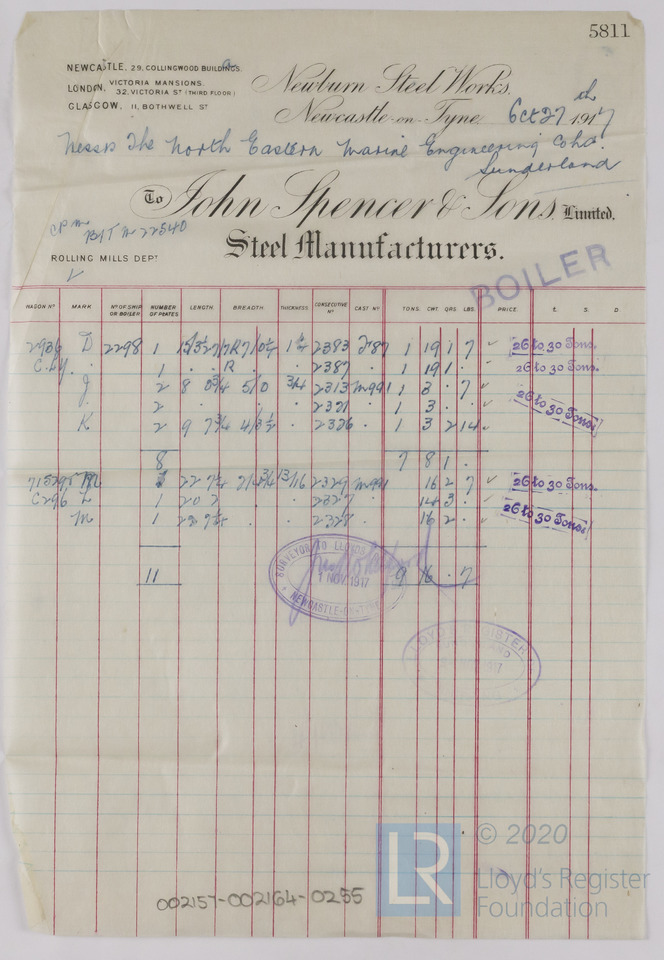 5811
NEWCASTLE, 29, COLLINGWOOD BUILDINGS.
LONDON, VICTORIA MANSIONS. 32, VICTORIA ST (THIRD FLOOR)
GLASGOW, 11, BOTHWELL ST
Newburn Steel Works.
Newcastle-on-Tyne. Oct 27th 1917
Messrs The North Eastern Marine Engineering Co Ld.
Sunderland
To John Spencer & Sons, Limited.
Steel Manufacturers.
B/T No 22540
ROLLING MILLS DEPT
BOILER
WAGON No MARK No OF SHIP OR BOILER NUMBER OF PLATES LENGTH BREADTH THICKNESS CONSECUTIVE No CAST No TONS. CWT. QRS. LBS. PRICE. £ S. D
2936 D 2298 1 2383 1 19 1 7 26 to 30 Tons.
1 . R . 2387 . 1 19 1 . 26 to 30 Tons.
J 2 8 0¾ 5/0 ¾ 2313 1 3 . 7
2 . . . 2321 . 1 3 . . 26 to 30 Tons.
K 2 9 7¾ 4/3½ . 2326 . 1 3 2 14
8 7 8 1 .
M 22 7¼ 13/16 2329 16 2 7 26 to 30 Tons.
C296 L 1 20 2 . . 2327 . 14 3 .
M 1 22 7¼ . . 2328 . 16 2 . 26 to 30 Tons.
11 9 16 . 7
SURVEYOR TO LLOYDS
1 NOV 1917
NEWCASTLE-ON-TYNE
LLOYD'S REGISTER
002157-002164-0255
LR
© 2020
Lloyd's Register
Foundation